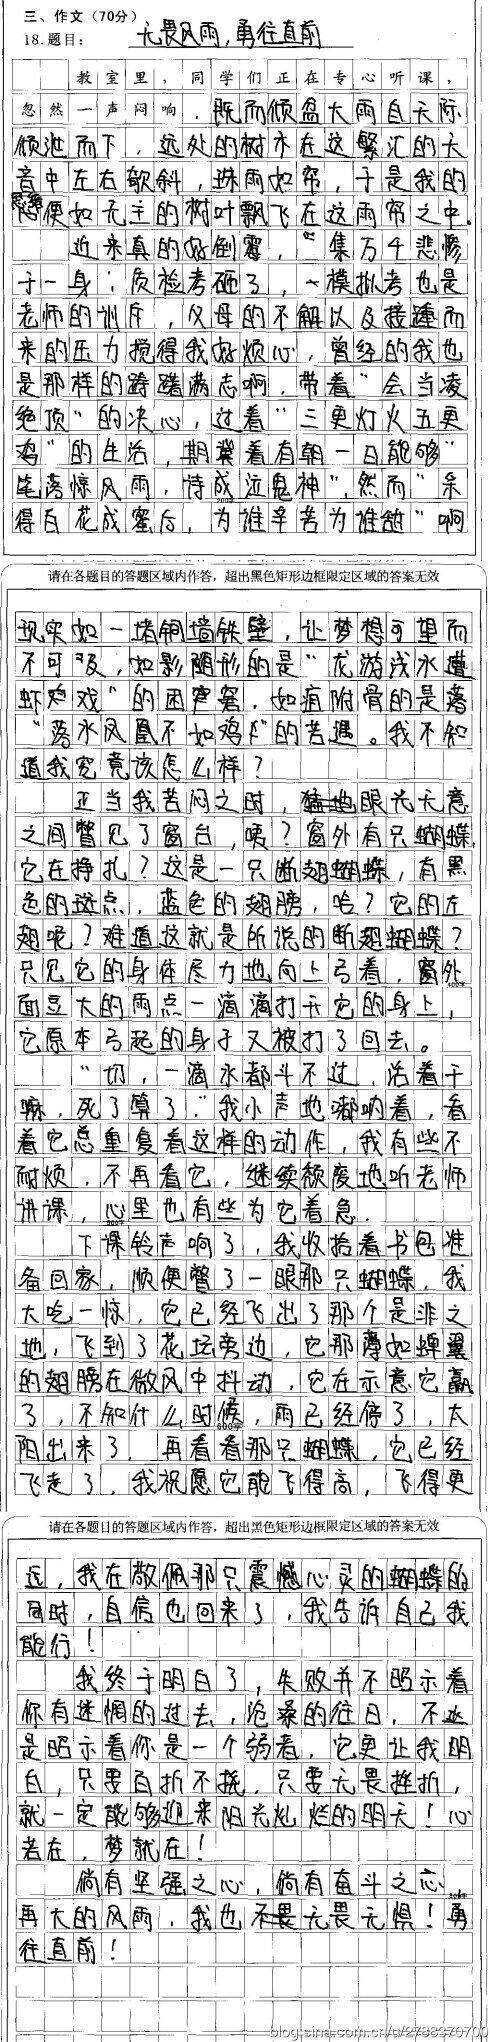 三、作文（70分）
18.题目： 无畏风雨，勇往直前
教室里，同学们正在专心听课，
忽然一声闷响，既而倾盆大雨自天际
倾泄而下，远处的树亦在这繁汇的天
音中左右欹斜，珠雨如帘，于是我的
思绪便如无主的树叶飘飞在这雨帘之中。
近来真的好倒霉，"集万千悲惨
于一身：质检考砸了，一模拟考也是
老师的训斥，父母的不解以及接踵而
来的压力搅得我好烦心，曾经的我也
是那样的踌躇满志啊，带着"会当凌
绝顶"的决心，过着"三更灯火五更
鸡"的生活，期冀着有朝一日能够"
笔落惊风雨，诗成泣鬼神"，然而"采
得百花成蜜后，为谁辛苦为谁甜"啊
请在各题目的答题区域内作答，超出黑色矩形边框限定区域的答案无效
现实如一堵铜墙铁壁，让梦想可望而
不可及，如影随形的是"龙游浅水遭
虾戏"的困窘，如疽附骨的是落
"落水凤凰不如鸡"的苦遇。我不知
道我究竟该怎么样？
正当我苦闷之时，眼光无意
之间瞥见了窗台，咦？窗外有只蝴蝶，
它在挣扎？这是一只断翅蝴蝶，有黑
色的斑点，蓝色的翅膀，哈？它的左
翅呢？难道这就是所说的断翅蝴蝶？
只见它的身体尽力地向上弓着，窗外
面豆大的雨点一滴滴打于它的身上，
它原本弓起的身子又被打了回去。
"切，一滴水都斗不过，活着干
嘛，死了算了。"我小声地嘟呐着，看
着它总重复着这样的动作，我有些不
耐烦，不再看它，继续颓废地听老师
讲课，心里也有些为它着急。
下课铃声响了，我收拾着书包准
备回家，顺便瞥了一眼那只蝴蝶，我
大吃一惊，它已经飞出了那个是非之
地，飞到了花坛旁边，它那薄如蝉翼
的翅膀在微风中抖动，它在示意它赢
了，不知什么时候，雨已经停了，太
阳出来了，再看看那只蝴蝶，它已经
飞走了，我祝愿它能飞得高，飞得更
请在各题目的答题区域内作答，超出黑色矩形边框限定区域的答案无效
远，我在敬佩那只震憾心灵的蝴蝶的
同时，自信也回来了，我告诉自己我
能行！
我终于明白了，失败并不昭示着
你有迷惘的过去，沧桑的往日，不
是昭示着你是一个弱者，它更让我明
白，只要百折不挠，只要无畏挫折，
就一定能够迎来阳光灿烂的明天！心
若在，梦就在！
倘有坚强之心，倘有奋斗之志
再大的风雨，我也无畏无惧！勇
往直前！
blog.sina.com.cn/u/2788370700